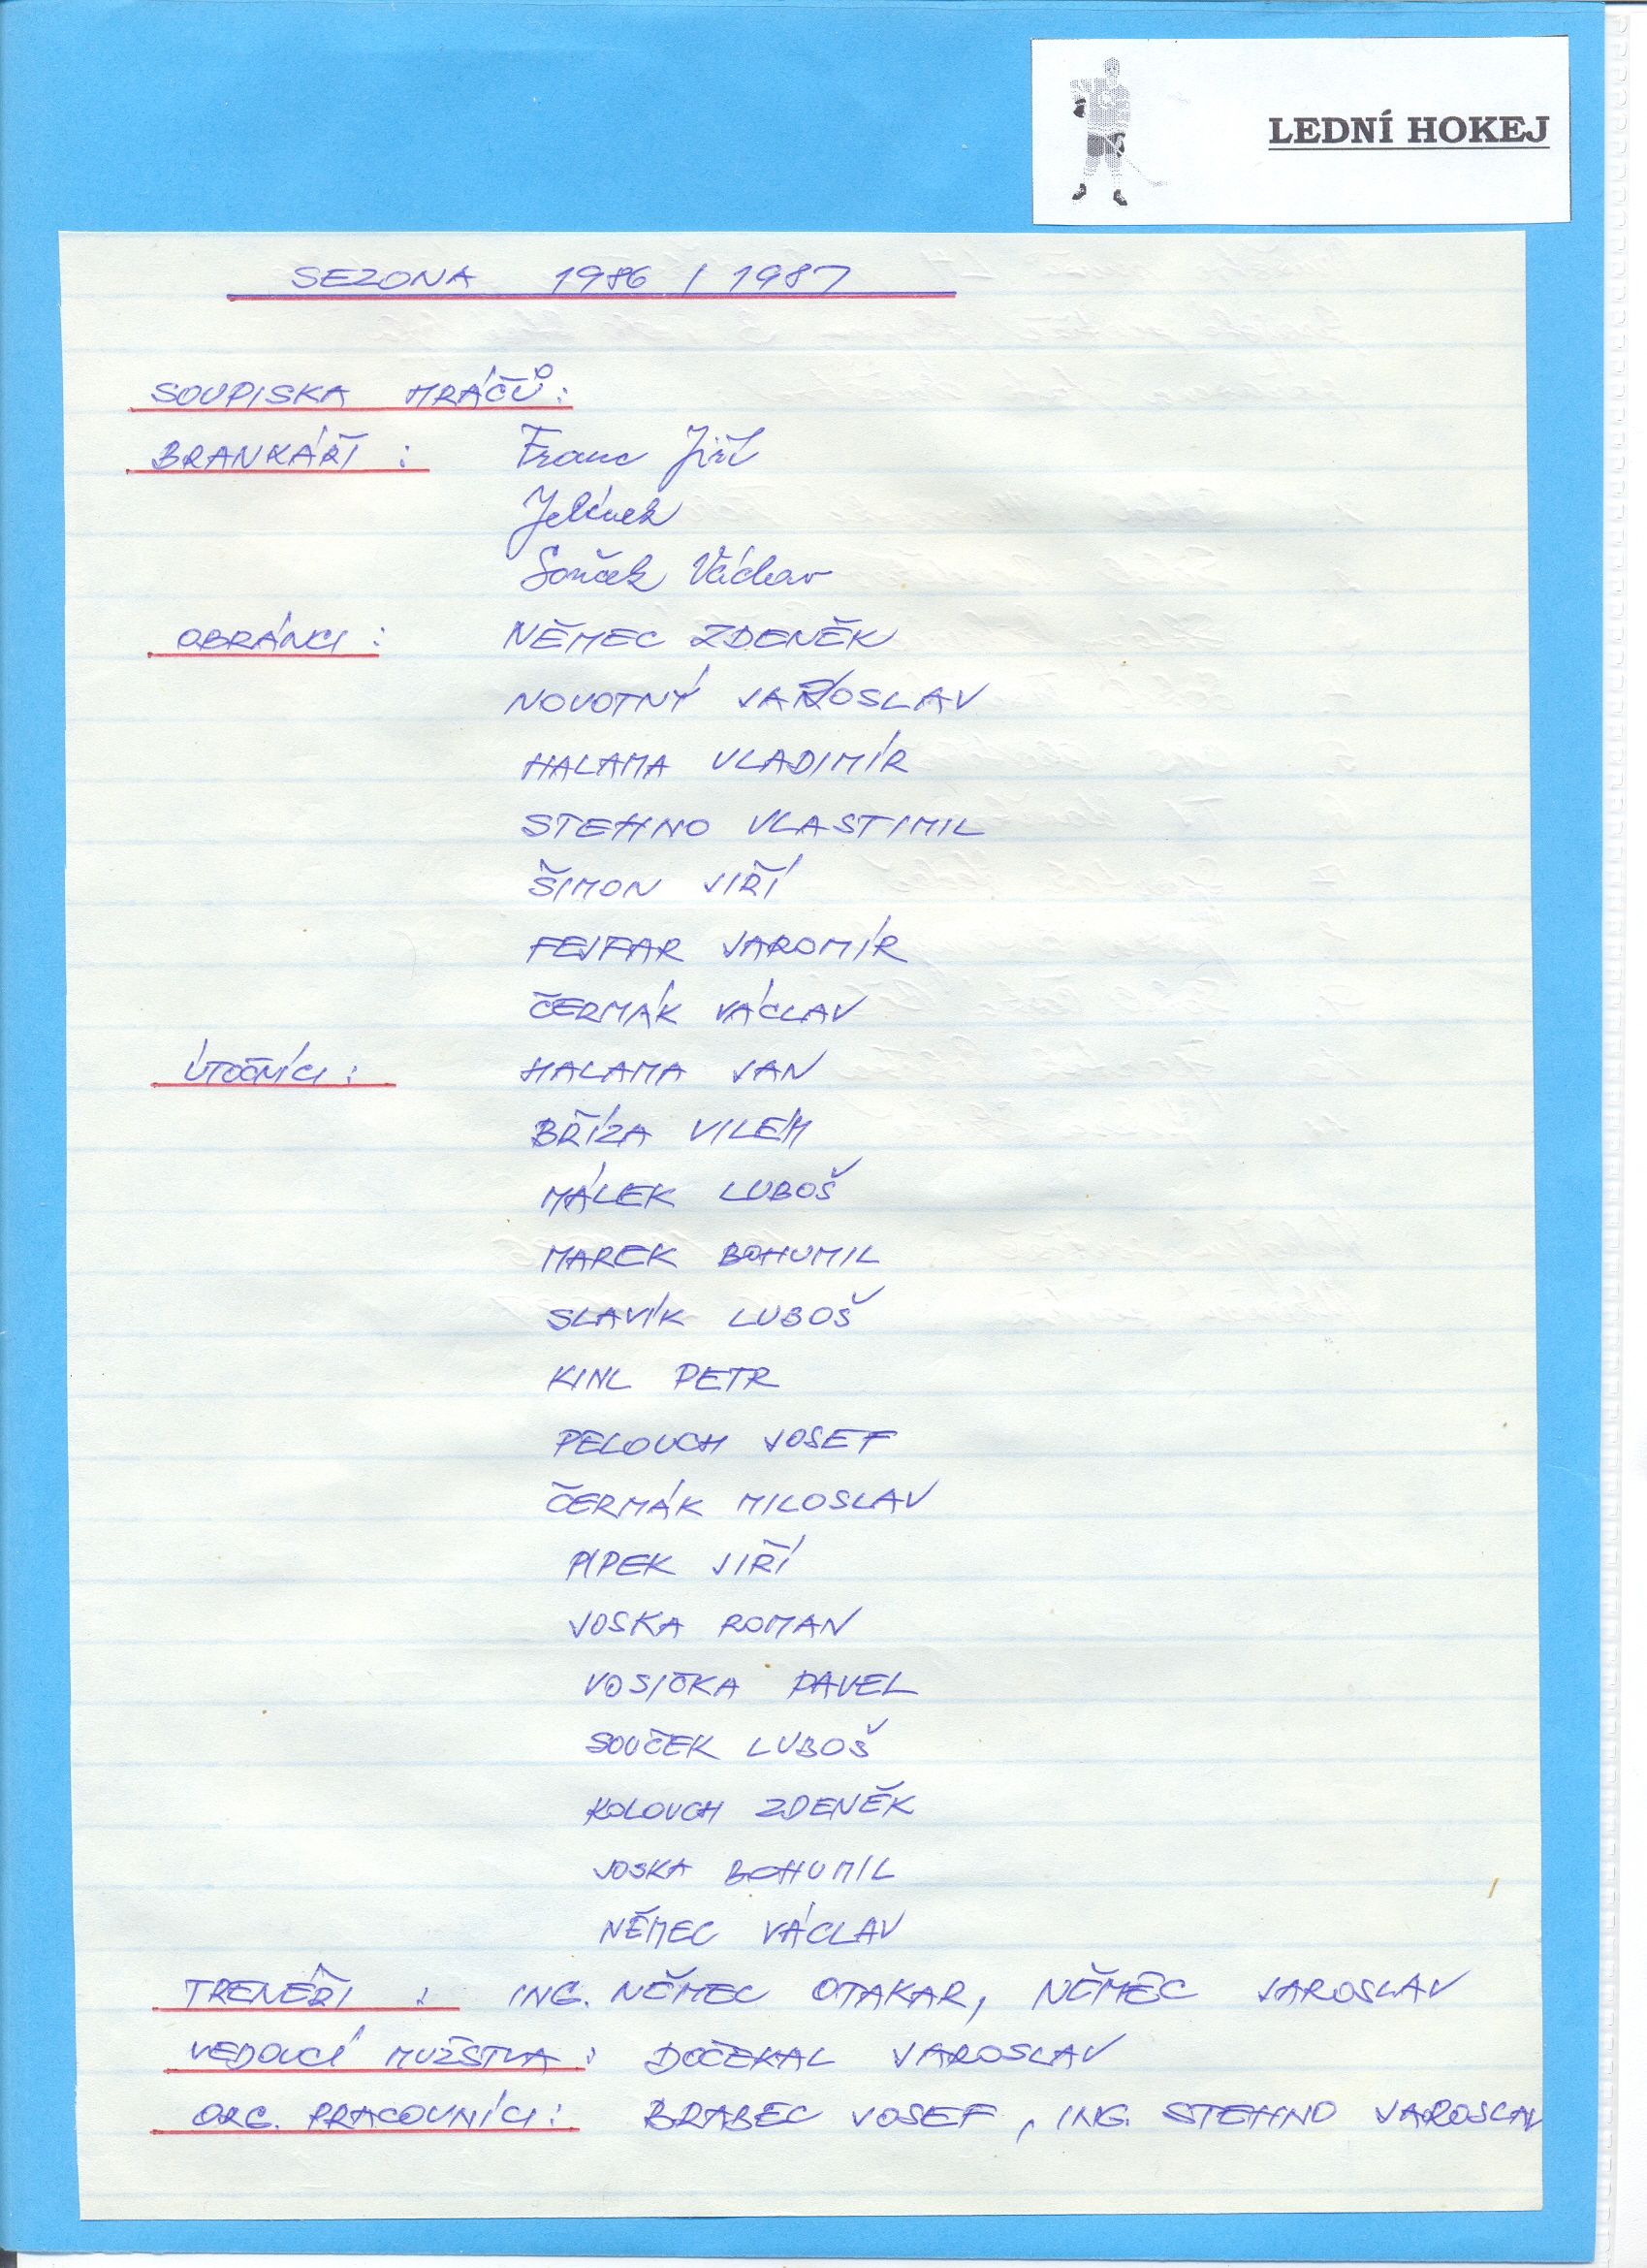 LEDNÍ HOKEJ
SEZONA 1986 / 1987
SOUPISKA HRÁČŮ:
BRANKÁŘI : Franc Jiří
Jelínek
Souček Václav
OBRÁNCI : NĚMEC ZDENĚK
NOVOTNÝ JAROSLAV
HALAMA VLADIMÍR
STEHNO VLASTIMIL
ŠIMON JIŘÍ
FEJFAR JAROMÍR
ČERMÁK VÁCLAV
ÚTOČNÍCI : HALAMA JAN
BŘÍZA VILÉM
MÁLEK LUBOŠ
MAREK BOHUMIL
SLAVÍK LUBOŠ
KINL PETR
PELOUCH JOSEF
ČERMÁK MILOSLAV
PIPEK JIŘÍ
JOSKA ROMAN
VOSIČKA PAVEL
SOUČEK LUBOŠ
KOLOUCH ZDENĚK
JOSKA BOHUMIL
NĚMEC VÁCLAV
TRENÉŘI : ING. NĚMEC OTAKAR, NĚMEC JAROSLAV
VEDOUCÍ MUŽSTVA : DOČEKAL JAROSLAV
ORG. PRACOVNÍCI : BRABEC JOSEF, ING. STEHNO JAROSLAV